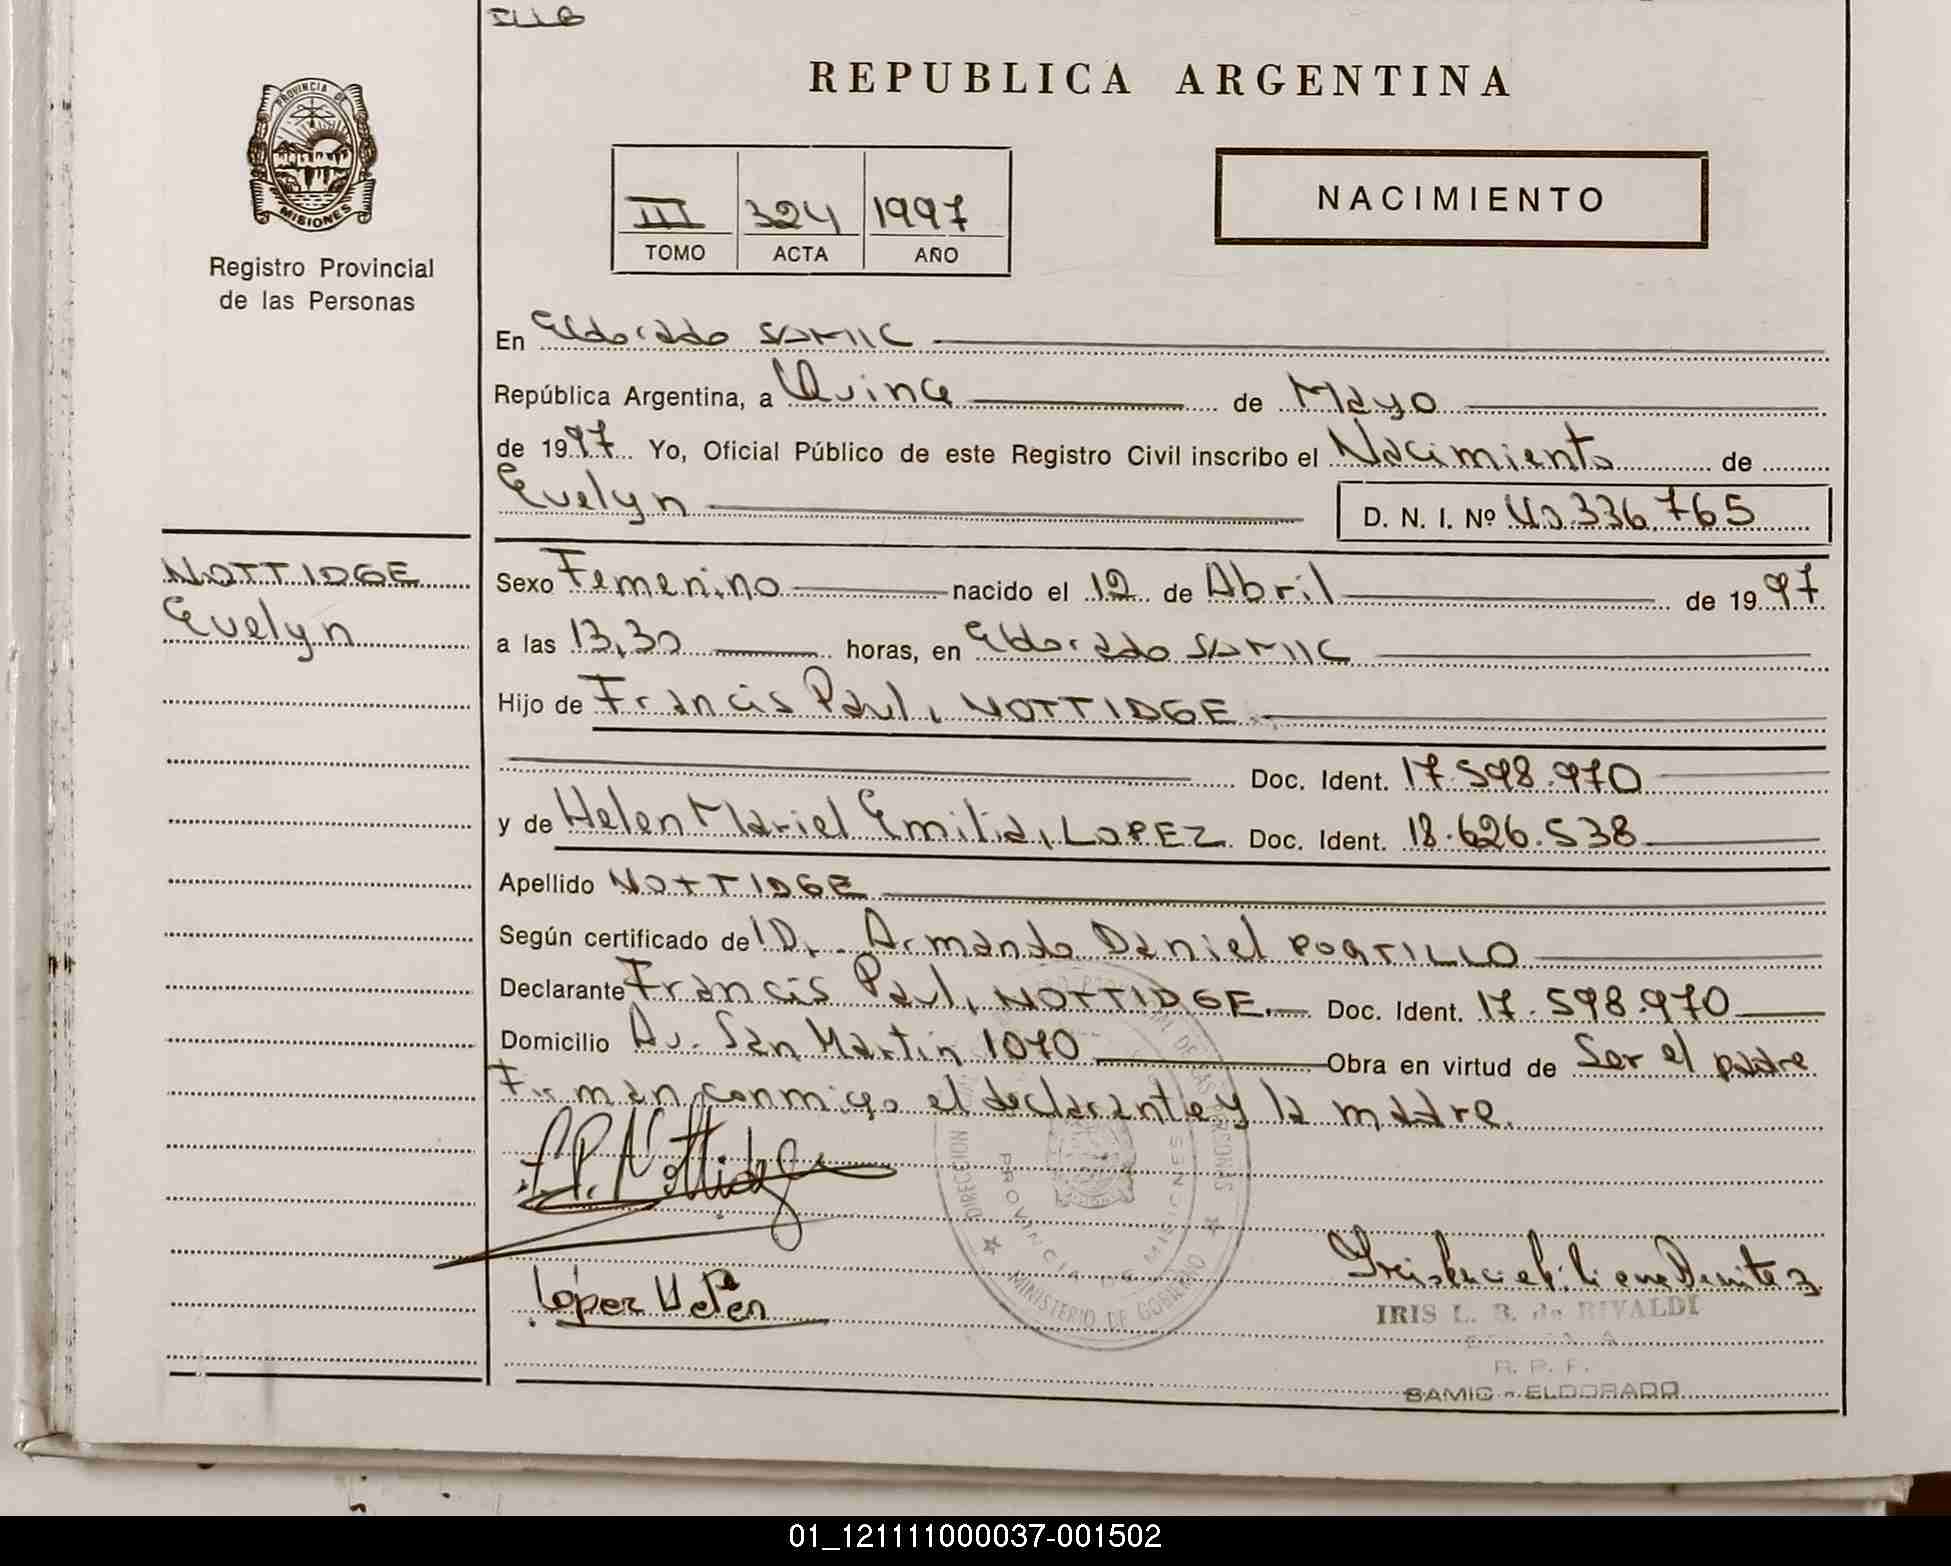 REPUBLICA ARGENTINA
PROVINCIA DE
MISIONES
Registro Provincial
de las Personas
III 324 1997
TOMO ACTA AÑO
NACIMIENTO
En Eldorado SAMIC
República Argentina, a Quince de Mayo
de 1997 Yo, Oficial Público de este Registro Civil inscribo el Nacimiento de
Evelyn D. N. I. Nº 40.336.765
NOTTIDGE
Evelyn
Sexo Femenino nacido el 12 de Abril de 1997
a las 13,30 horas, en Eldorado SAMIC
Hijo de Francis Paul, NOTTIDGE
Doc. Ident. 17.598.970
y de Helen Mariel Emilia, LOPEZ Doc. Ident. 18.626.538
Apellido NOTTIDGE
Según certificado de ID. Armando Daniel PORTILLO
Declarante Francis Paul, NOTTIDGE. Doc. Ident. 17.598.970
Domicilio Av. San Martin 1070 Obra en virtud de Ser el padre
Firman conmigo el declarante y la madre.
F.P. Nottidge
DIRECCION
PROVINCIA DE MISIONES
MINISTERIO DE GOBIERNO
López Helen
IRIS L. B. de RIVALDI
R. P. P.
SAMIC - ELDORADO
01_121111000037-001502